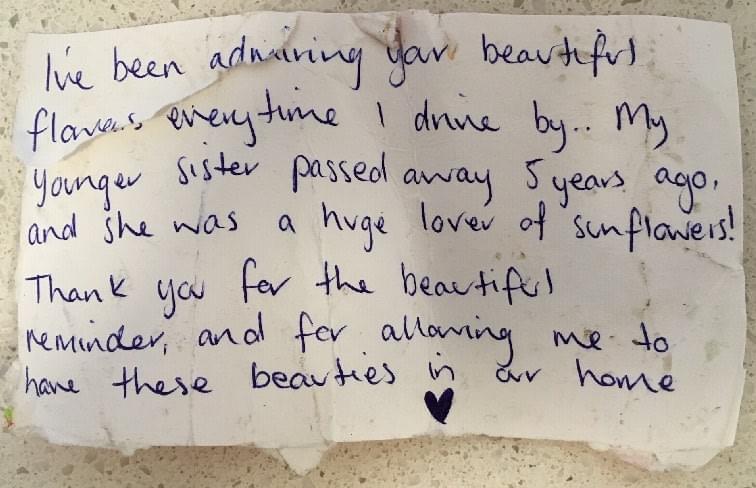 I've been admiring your beautiful
flowers everytime I drive by.. My
younger sister passed away 5 years ago,
and she was a huge lover of sunflowers!
Thank you for the beautiful
reminder, and for allowing me to
have these beauties in our home
♥